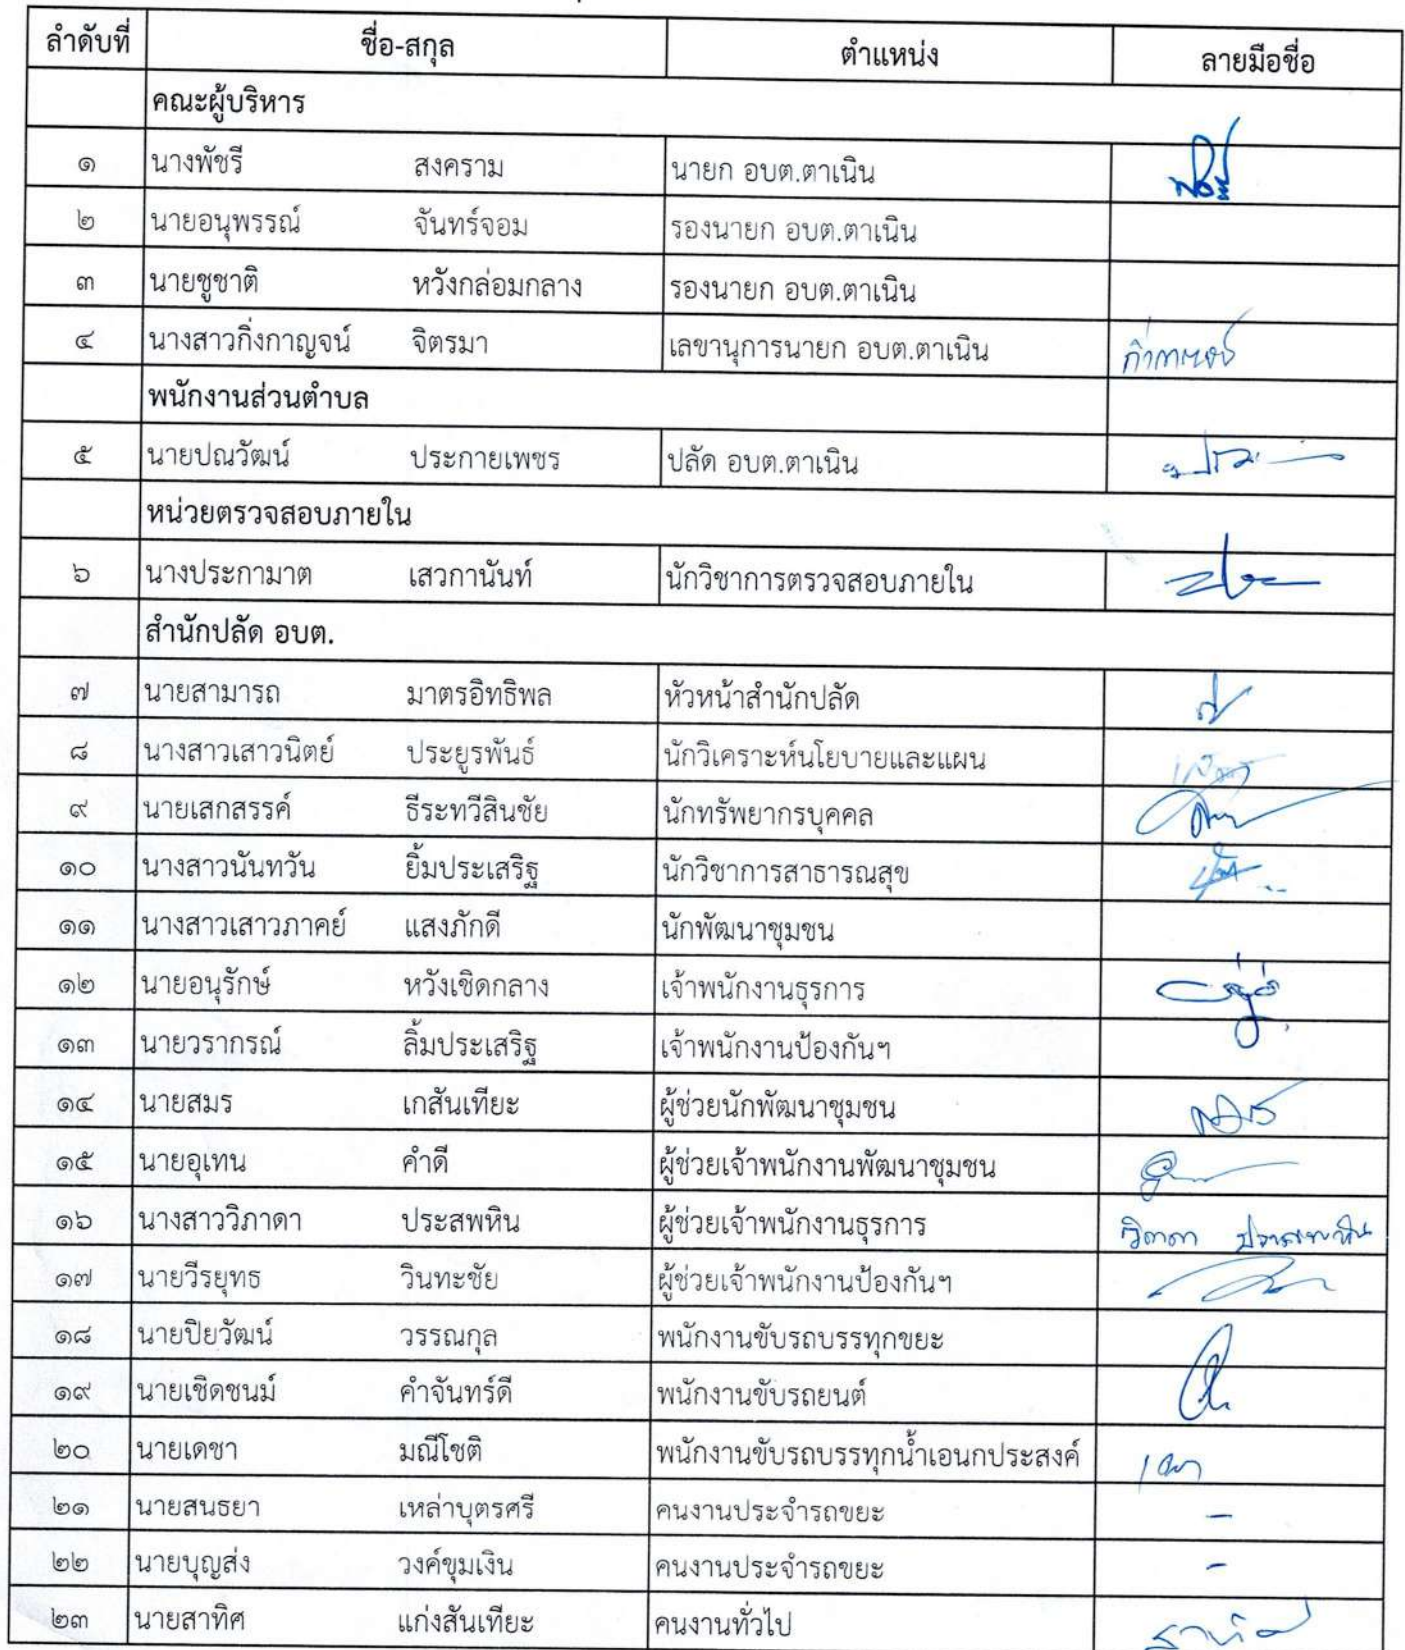 ลำดับที่ ชื่อ-สกุล ตำแหน่ง ลายมือชื่อ
คณะผู้บริหาร
๑ นางพัชรี สงคราม นายก อบต.ตาเนิน
๒ นายอนุพรรณ์ จันทร์จอม รองนายก อบต.ตาเนิน
๓ นายชูชาติ หวังกล่อมกลาง รองนายก อบต.ตาเนิน
๔ นางสาวกิ่งกาญจน์ จิตรมา เลขานุการนายก อบต.ตาเนิน
พนักงานส่วนตำบล
๕ นายปณวัฒน์ ประกายเพชร ปลัด อบต.ตาเนิน
หน่วยตรวจสอบภายใน
๖ นางประกามาต เสวกานันท์ นักวิชาการตรวจสอบภายใน
สำนักปลัด อบต.
๗ นายสามารถ มาตรอิทธิพล หัวหน้าสำนักปลัด
๘ นางสาวเสาวนิตย์ ประยูรพันธ์ นักวิเคราะห์นโยบายและแผน
๙ นายเสกสรรค์ ธีระทวีสินชัย นักทรัพยากรบุคคล
๑๐ นางสาวนันทวัน ยิ้มประเสริฐ นักวิชาการสาธารณสุข
๑๑ นางสาวเสาวภาคย์ แสงภักดี นักพัฒนาชุมชน
๑๒ นายอนุรักษ์ หวังเชิดกลาง เจ้าพนักงานธุรการ
๑๓ นายวรากรณ์ ลิ้มประเสริฐ เจ้าพนักงานป้องกันฯ
๑๔ นายสมร เกสันเทียะ ผู้ช่วยนักพัฒนาชุมชน
๑๕ นายอุเทน คำดี ผู้ช่วยเจ้าพนักงานพัฒนาชุมชน
๑๖ นางสาววิภาดา ประสพหิน ผู้ช่วยเจ้าพนักงานธุรการ วิภาดา ประสพหิน
๑๗ นายวีรยุทธ วินทะชัย ผู้ช่วยเจ้าพนักงานป้องกันฯ
๑๘ นายปิยวัฒน์ วรรณกุล พนักงานขับรถบรรทุกขยะ
๑๙ นายเชิดชนม์ คำจันทร์ดี พนักงานขับรถยนต์
๒๐ นายเดชา มณีโชติ พนักงานขับรถบรรทุกน้ำเอนกประสงค์
๒๑ นายสนธยา เหล่าบุตรศรี คนงานประจำรถขยะ -
๒๒ นายบุญส่ง วงค์ขุมเงิน คนงานประจำรถขยะ -
๒๓ นายสาทิศ แก่งสันเทียะ คนงานทั่วไป